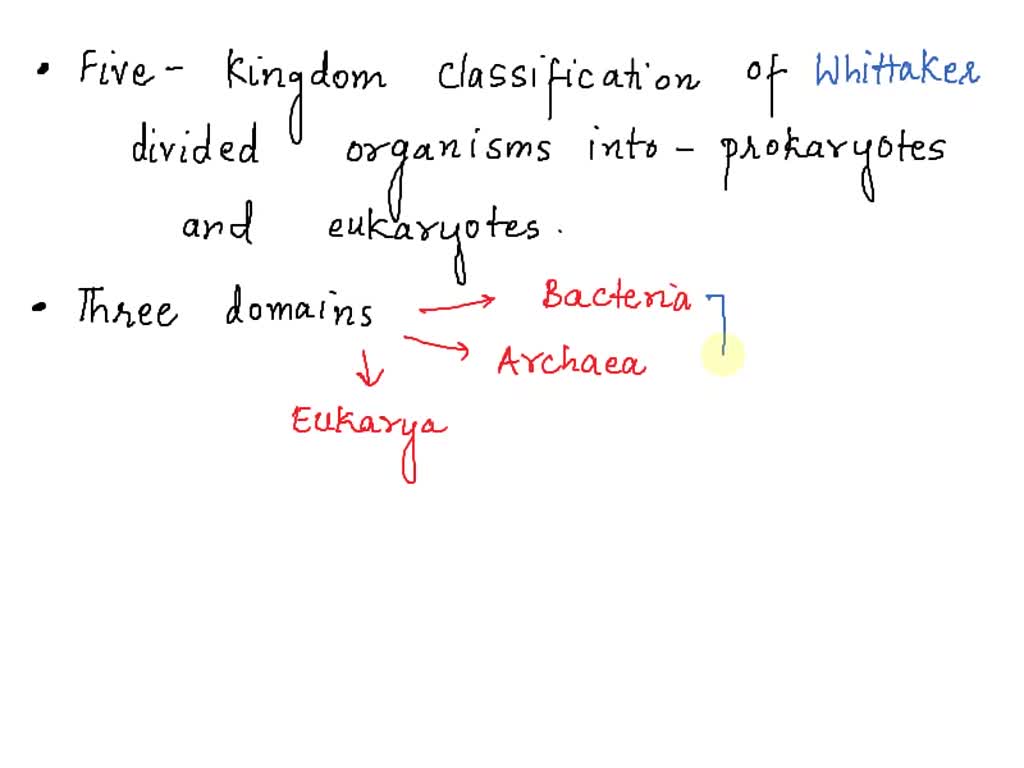 • Five - Kingdom classification of Whittaker
divided organisms into - prokaryotes
and eukaryotes.
• Three domains → Bacteria
Archaea
Eukarya